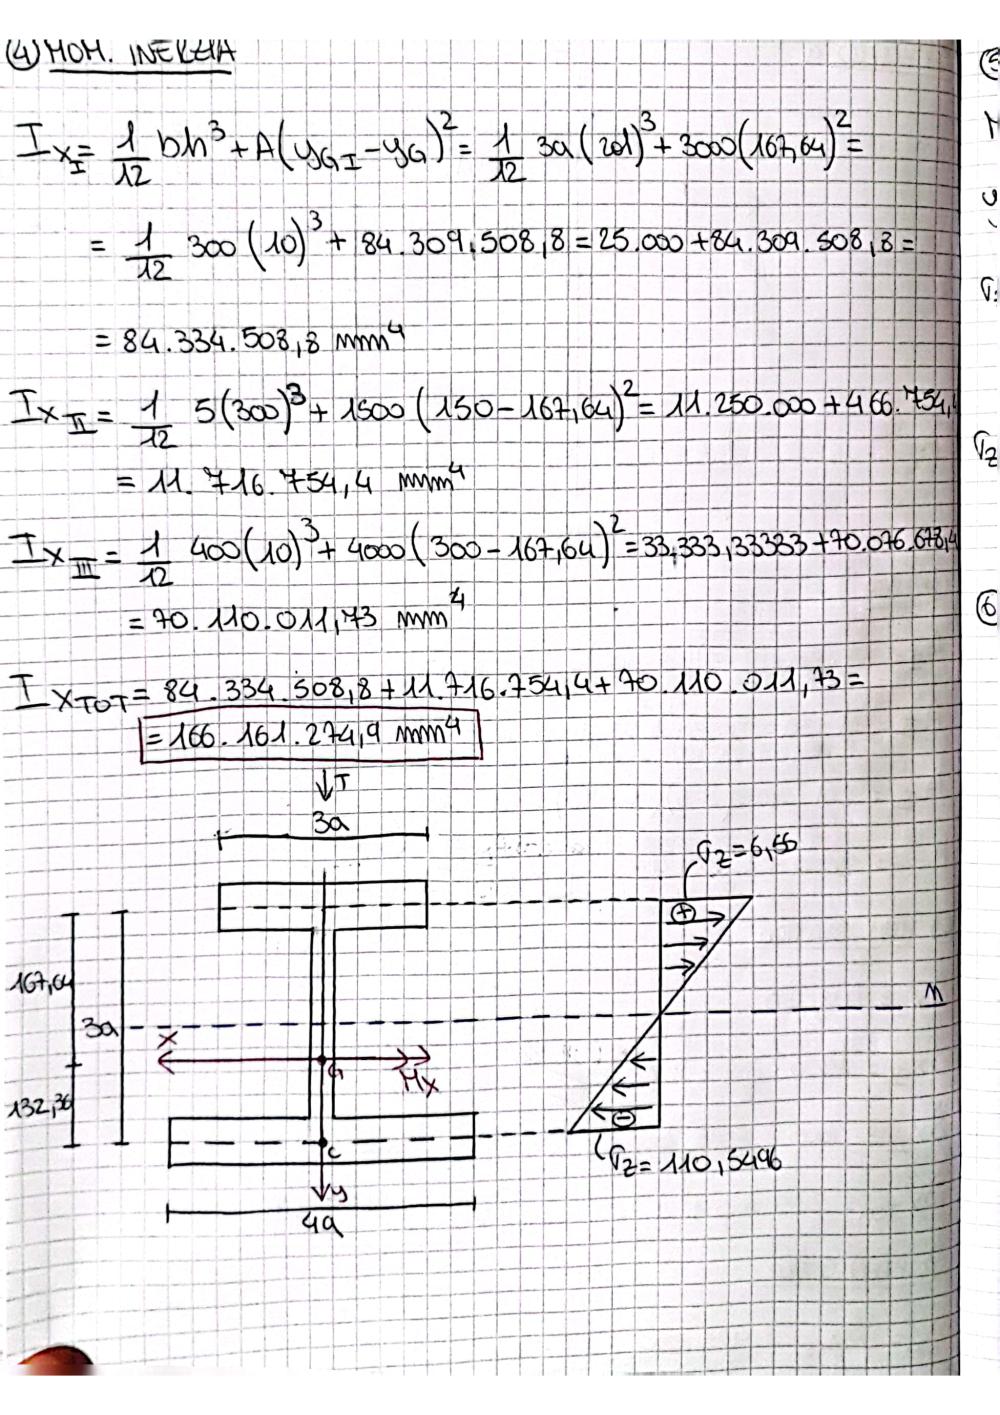 ④ MOM. INERZIA
I_{x_I} = 1/12 bh³ + A(y_{GI} - y_G)² = 1/12 3a(2d)³ + 3000(167,64)² =
= 1/12 300(10)³ + 84.309.508,8 = 25.000 + 84.309.508,8 =
= 84.334.508,8 mm⁴
I_{x_II} = 1/12 5(300)³ + 1500(150-167,64)² = 11.250.000 + 466.754,4
= 11.716.754,4 mm⁴
I_{x_III} = 1/12 400(10)³ + 4000(300-167,64)² = 33.333,33333 + 70.076.678,4
= 70.110.011,73 mm⁴
I_{xTOT} = 84.334.508,8 + 11.716.754,4 + 70.110.011,73 =
= 166.161.274,9 mm⁴
↓T
3a
σz = 6,55
⊕
167,64
3a
n
x
G
Mx
132,36
⊖
C
σz = 110,5496
y
4a